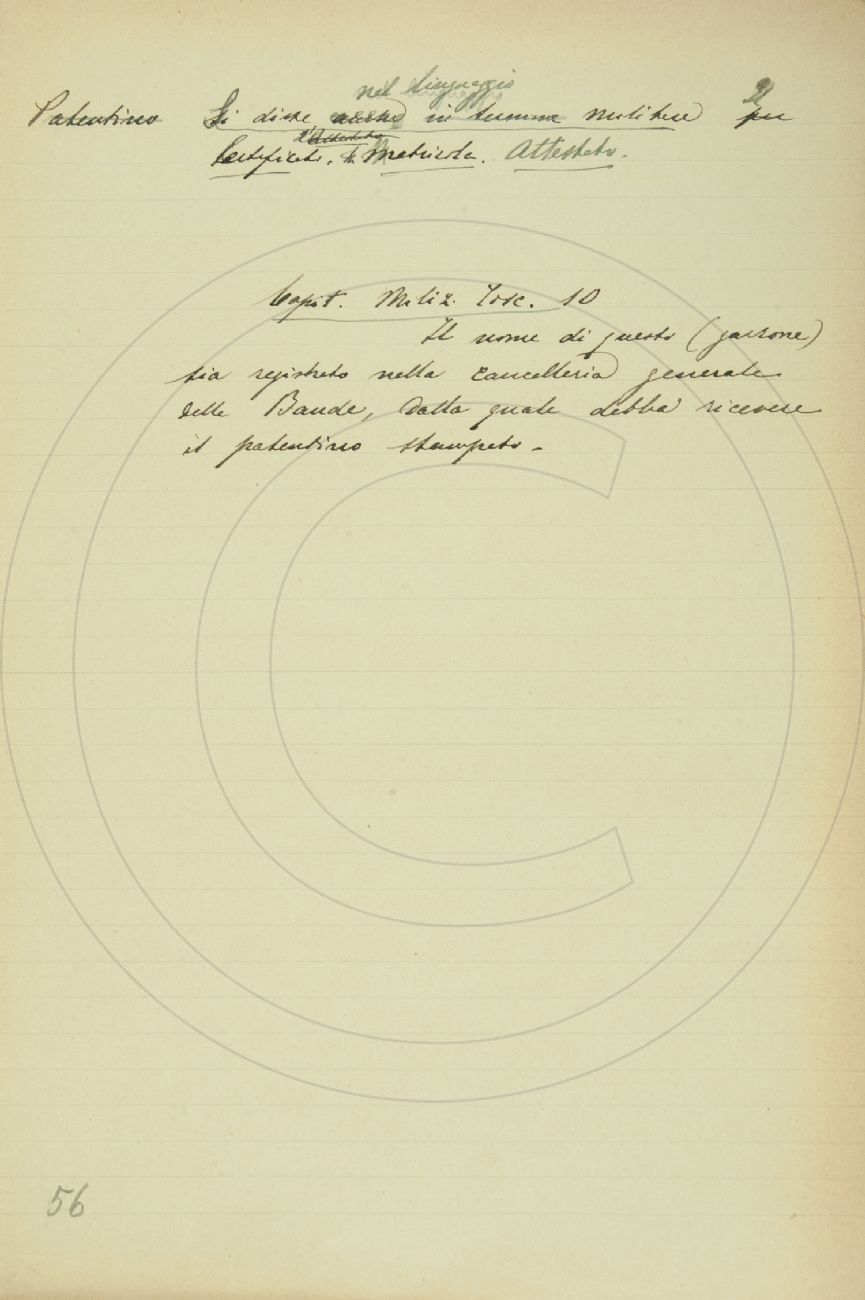 nel linguaggio
Patentino Si disse anche in termine militare per
l'Attestato
Certificato. Matricola. Attestato.
Capit. Miliz. Tosc. 10
Il nome di questo (garzone)
sia registrato nella cancelleria generale
delle Bande, dalla quale debba ricevere
il patentino stampato.
56